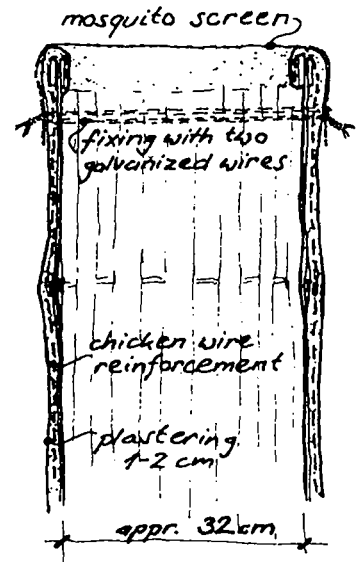 mosquito screen
fixing with two
galvanized wires
chicken wire
reinforcement
plastering
1-2 cm
appr. 32 cm